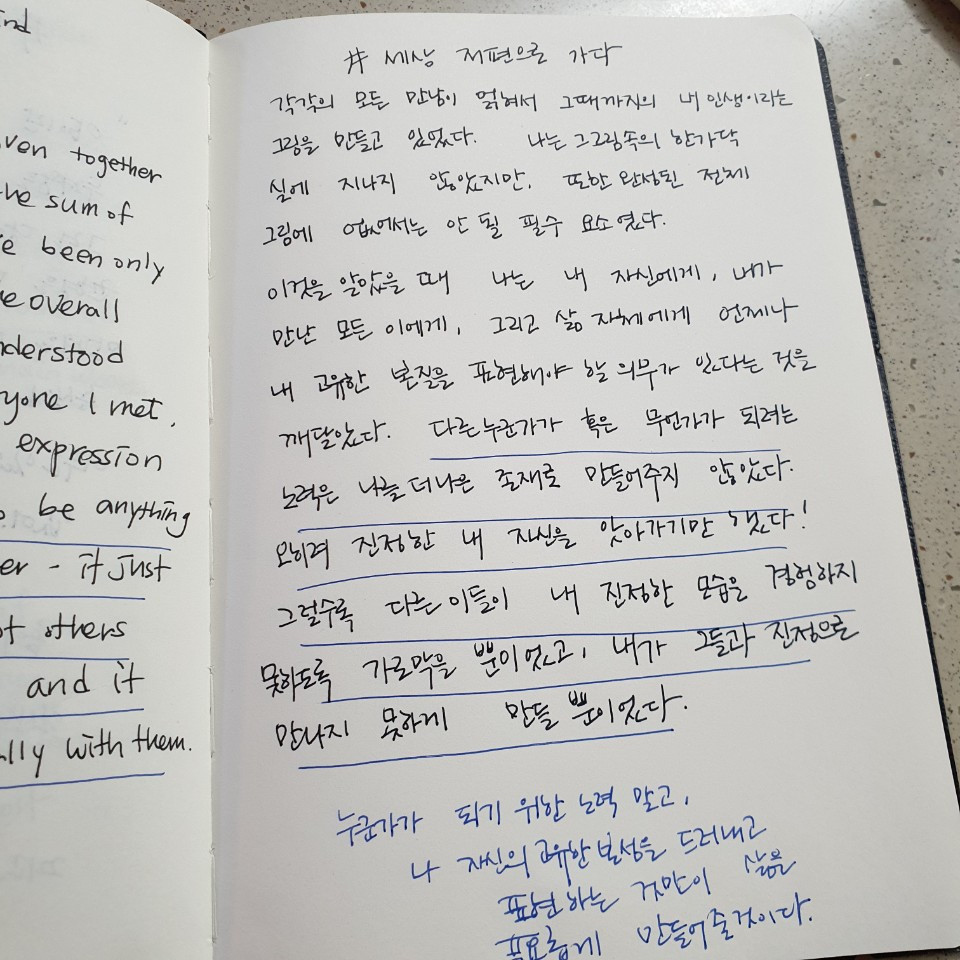 nd
ven together
he sum of
e been only
e overall
nderstood
yone I met,
expression
be anything
er - it just
of others
and it
ally with them.
# 세상 저편으로 가다
각각의 모든 만남이 얽혀서 그때까지의 내 인생이라는
그림을 만들고 있었다. 나는 그 그림속의 한가닥
실에 지나지 않았지만, 또한 완성된 전체
그림에 없어서는 안 될 필수 요소였다.
이것을 알았을 때 나는 내 자신에게, 내가
만난 모든 이에게, 그리고 삶 자체에게 언제나
내 고유한 본질을 표현해야 할 의무가 있다는 것을
깨달았다. 다른 누군가가 혹은 무언가가 되려는
노력은 나를 더 나은 존재로 만들어주지 않았다.
오히려 진정한 내 자신을 앗아가기만 했다!
그럴수록 다른 이들이 내 진정한 모습을 경험하지
못하도록 가로막을 뿐이었고, 내가 그들과 진정으로
만나지 못하게 만들 뿐이었다.
누군가가 되기 위한 노력 말고,
나 자신의 고유한 본성을 드러내고
표현하는 것만이 삶을
풍요롭게 만들어줄것이다.